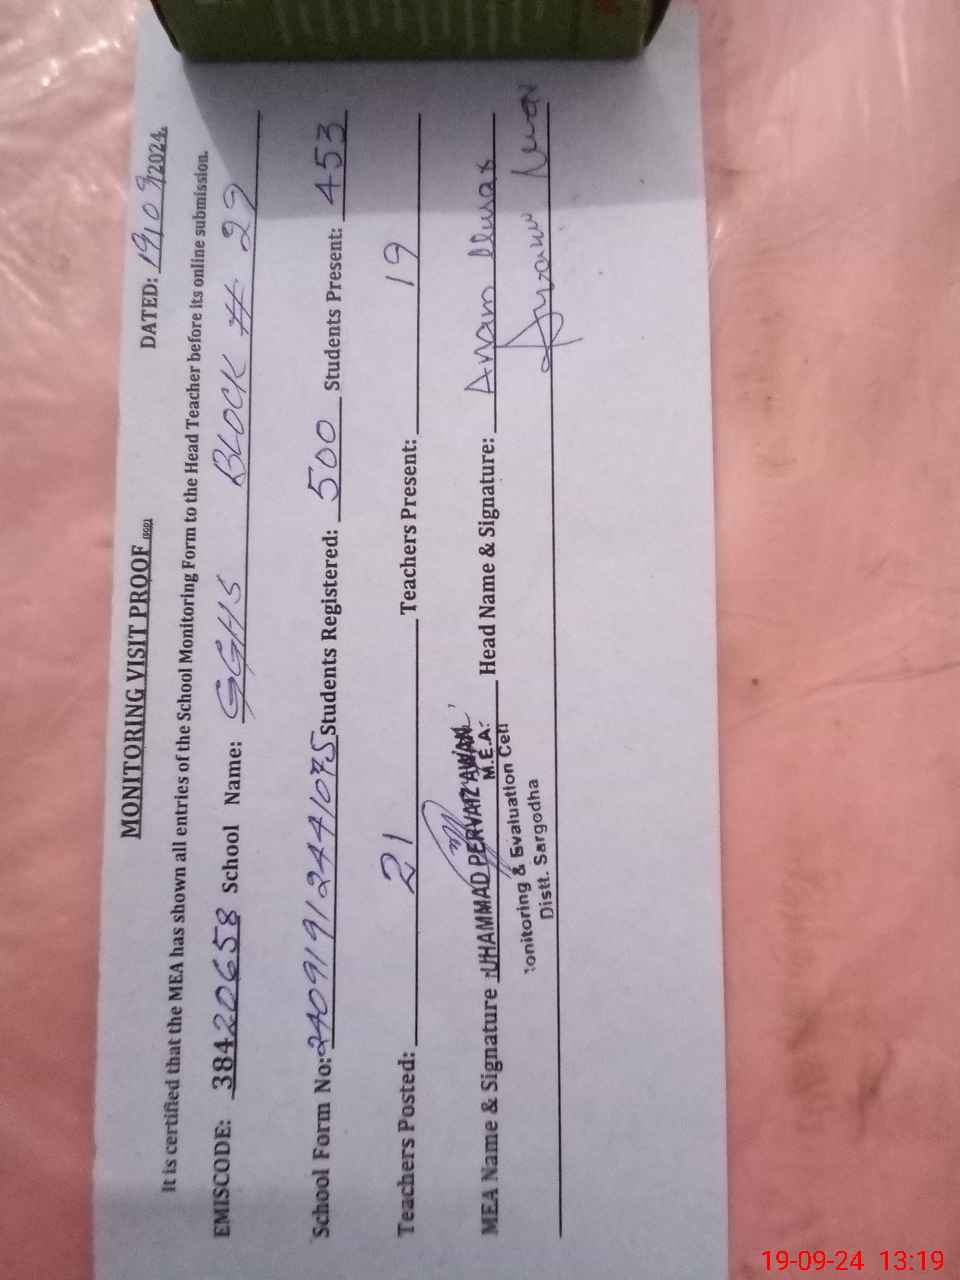 MONITORING VISIT PROOF
DATED: 19/09/2024.
It is certified that the MEA has shown all entries of the School Monitoring Form to the Head Teacher before its online submission.
EMISCODE: 38420658 School Name: GGHS BLOCK # 29
School Form No: 24091912441075 Students Registered: 500 Students Present: 453
Teachers Posted: 21 Teachers Present: 19
MEA Name & Signature UHAMMAD PERVAIZ AWAN Head Name & Signature: Anam
M.E.A.
onitoring & Evaluation Cell
Distt. Sargodha
19-09-24 13:19